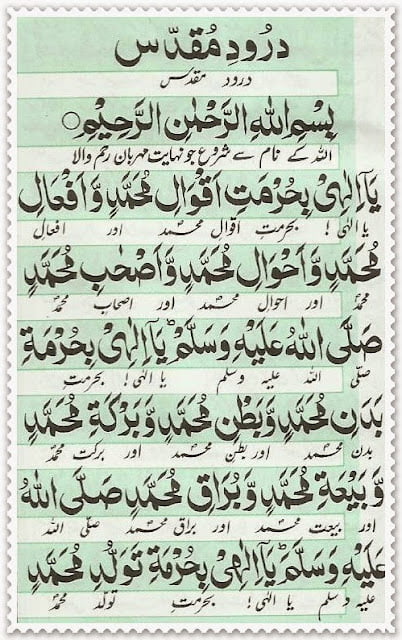 دُرُودِ مُقَدَّس
درود مقدس
بِسْمِ اللهِ الرَّحْمٰنِ الرَّحِيْمِ○
اللہ کے نام سے شروع جو نہایت مہربان رحم والا
يَآ اِلٰهِىْ بِحُرْمَتِ اَقْوَالِ مُحَمَّدٍ وَّ اَفْعَالِ
یا الٰہی ! بحرمتِ اقوالِ محمد اور افعالِ
مُحَمَّدٍ وَّ اَحْوَالِ مُحَمَّدٍ وَّ اَصْحٰبِ مُحَمَّدٍ
محمدؐ اور احوال محمد اور اصحاب محمدؐ
صَلَّى اللهُ عَلَيْهِ وَسَلَّمَ ؕ يَآ اِلٰهِىْ بِحُرْمَةِ
صلّی اللہ علیہ وسلم یا الٰہی! بحرمتِ
بَدَنِ مُحَمَّدٍ وَّ بَطْنِ مُحَمَّدٍ وَّ بَرْكَةِ مُحَمَّدٍ
بدن محمد اور بطن محمد اور برکت محمدؐ
وَّ بَيْعَةِ مُحَمَّدٍ وَّ بُرَاقِ مُحَمَّدٍ صَلَّى اللهُ
اور بیعت محمد اور براق محمد صلّی اللہ
عَلَيْهِ وَسَلَّمَ ؕ يَآ اِلٰهِىْ بِحُرْمَةِ تَوَلُّدِ مُحَمَّدٍ
علیہ وسلم یا الٰہی! بحرمتِ تولد محمدؐ